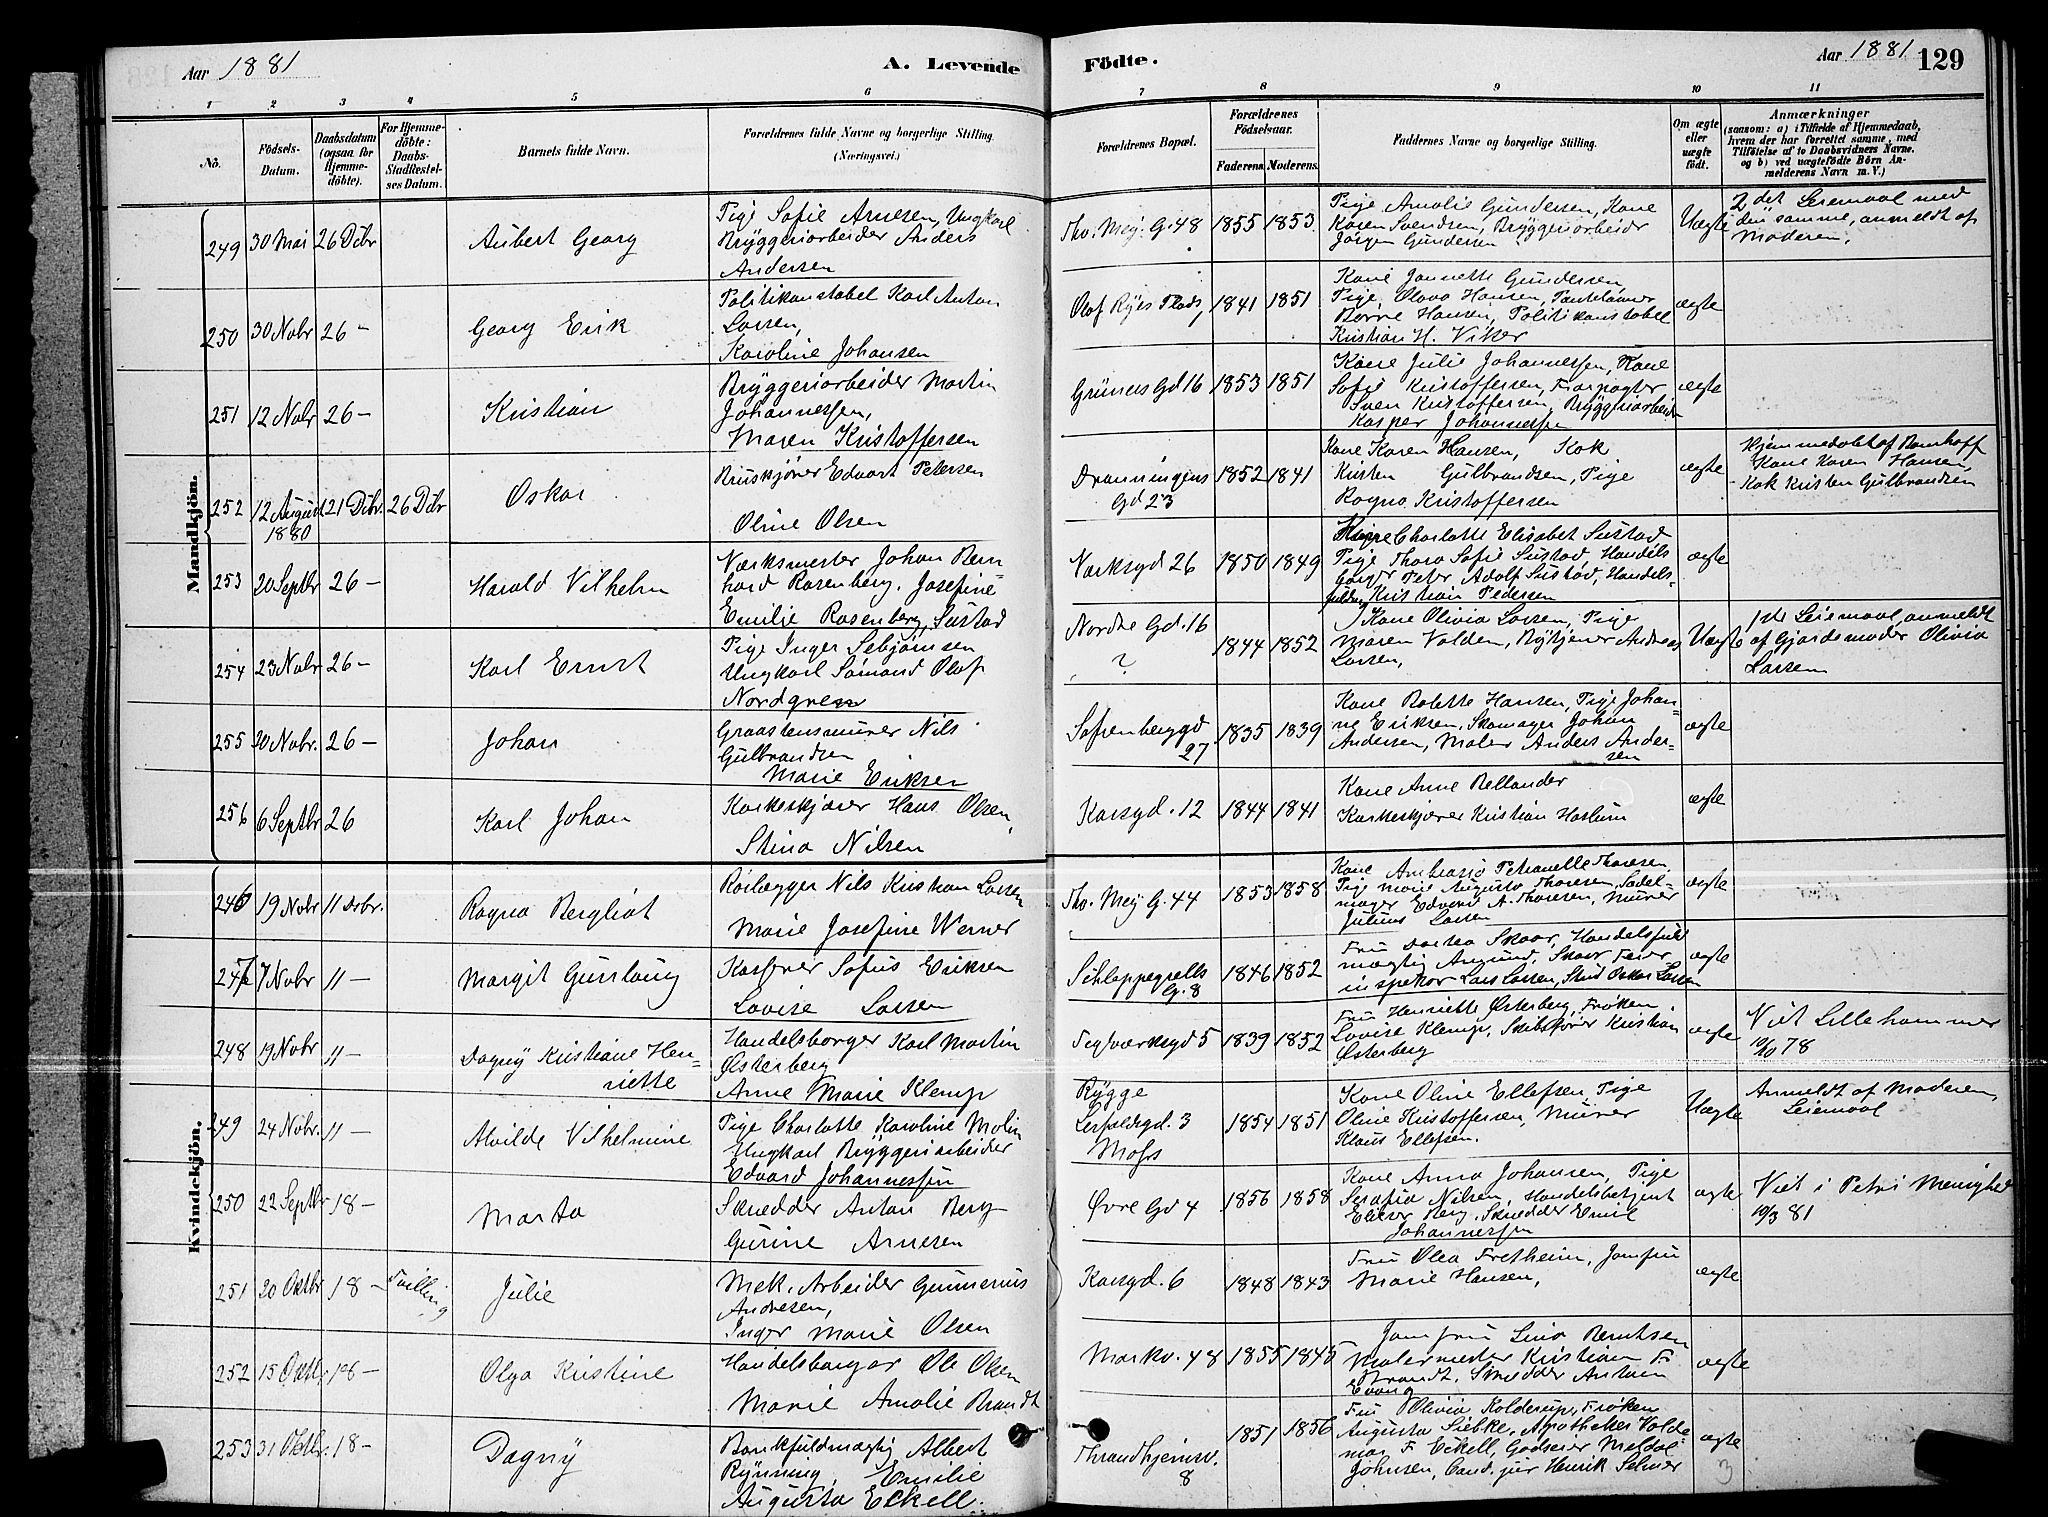 Aar 1881
A. Levende
Födte.
Aar 1881
129
1
2
3
4
5
6
7
8
9
10
11
No.
Födsels-
Datum.
Daabsdatum
(ogsaa for
Hjemme-
döbte).
For Hjemme-
döbte:
Daabs-
Stadfæstel-
ses Datum.
Barnets fulde Navn.
Forældrenes fulde Navne og borgerlige Stilling.
(Næringsvei.)
Forældrenes Bopæl.
Forældrenes
Födselsaar.
Faderens.
Moderens.
Faddernes Navne og borgerlige Stilling.
Om ægte
eller
uægte
født.
Anmærkninger
(saasom: a) i Tilfælde af Hjemmedaab,
hvem der har forrettet samme, med
Tilföielse af to Daabsvidners Navne,
og b) ved uægtefödte Börn An-
melderens Navn m. V.)
Mandkjön.
249
30 Mai
26 Dcbr
Aubert Georg
Pige Sofie Arnesen, Ungkarl
Bryggeriarbeider Anders
Andersen
Thv. Mey. G. 48
1855
1853
Pige Amalie Gundersen, Kone
Karen Svendsen, Bryggeriarbeider
Jörgen Gundersen
Uægte
2det Leiemaal med
den samme, anmeldt af
Moderen.
250
30 Nobr
26 -
Georg Erik
Politikonstabel Karl Anton
Larsen,
Karoline Johansen
Olaf Ryes Plads,
1841
1851
Kone Jannette Gundersen,
Pige, Olava Hansen, Pantelaaner
Börre Hansen, Politikonstabel
Kristian H. Viker
ægte
251
12 Nobr
26 -
Kristian
Bryggeriarbeider Martin
Johannessen,
Maren Kristoffersen
Grüners Gd 16
1853
1851
Kone Julie Johannessen, Kone
Sofie Kristoffersen, Forpagter
Sven Kristoffersen, Bryggeriarbeider
Kasper Johannessen
ægte
252
12 August
1880
21 Dcbr.
26 Dcbr
Oskar
Bruskjörer Edvart Petersen
Oline Olsen
Dronningens
Gd 23
1852
1841
Kone Karen Hansen, Kok
Kristen Gulbrandsen, Pige
Ragna Kristoffersen
ægte
Hjemmedøbt af
Kone Karen Hansen,
Kok Kristen Gulbrandsen
253
20 Septbr
26 -
Harald Vilhelm
Værksmester Johan Bern
hard Rosenberg. Josefine
Emilie Rosenberg, Sustad
Værksgd 26
1850
1849
Charlotte Elisabet Sustad
Pige Thora Sofie Sustad, Handels
borger Peter Adolf Sustad, Handels-
fuldm. Kristian Pedersen
ægte
254
23 Nobr
26 -
Karl Ernst
Pige Inger Sebjørnsen
Ungkarl Sømand Olaf
Nordgren
Nordre Gd. 16
?
1844
1852
Kone Olivia Larsen, Pige
Maren Volden, Andreas
Larsen,
Uægte
1ste Leiemaal, anmeldt
af Gjordemoder Olivia
Larsen
255
20 Nobr.
26 -
Johan
Graastensmurer Nils
Gulbrandsen
Marie Eriksen
Sofienberggd
27
1835
1839
Kone Bolette Hansen, Pige Johan-
ne Eriksen, Skomager Johan
Andersen, Maler Anders Ander-
sen
ægte
256
6 Septbr
26
Karl Johan
Korkeskjærer Hans Olsen,
Stina Nilsen
Korsgd. 12
1844
1841
Kone Anne Bellander
Korkeskjærer Kristian Haslum
ægte
Kvindekjön.
246
19 Nobr
11 Dcbr.
Ragna Bergliot
Rörlægger Nils Kristian Larsen
Marie Josefine Werner
Thv. Mey G. 44
1853
1858
Kone Petronelle Thoresen,
Pige Marie Augusta Thoresen, Sadel-
mager Edvard A. Thoresen, Murer
Julius Larsen
ægte
247
7 Nobr
11 -
Margit Gunlaug
Kasserer Sofus Eriksen
Lovise Larsen
Schleppegrells
G. 8
1846
1852
Fru Dortea Skaar, Handelsfuld
mægtig Amund Skaar, Feier
inspektør Lars Larsen, Stud Oskar Larsen
ægte
248
19 Nobr
11 -
Dagny Kristiane Hen-
riette
Handelsborger Karl Martin
Østerberg
Anne Marie Klemp
Teglværksgd 5
1839
1852
Fru Henriette Østerberg, Frøken
Lovise Klemp, Skibsfører Kristian
Østerberg
ægte
Viet Lillehammer
10/10 78
249
24 Nobr.
11 -
Alvilde Vilhelmine
Pige Charlotte Karoline Molin
Ungkarl Bryggeriarbeider
Edvard Johannessen
Rygge
Lerfaldsgd. 3
Moss
1854
1851
Kone Oline Ellefsen Pige
Oline Kristoffersen, Murer
Klaus Ellefsen.
Uægte
Anmeldt af Moderen,
Leiemaal
250
22 Septbr
18 -
Marta
Skrædder Anton Berg
Gurine Arnesen
Øvre Gd 4
1856
1858
Kone Anna Johansen, Pige
Serafia Nilsen, Handelsbetjent
Elieser Berg. Skrædder Emil
Johannessen
ægte
Viet i Petri Menighed
10/3 81
251
20 Oktbr
18 -
Tvilling
Julie
Mek. Arbeider Gunnerius
Andresen,
Inger Marie Olsen
Korsgd. 6
1848
1843
Fru Olea Fretheim, Jomfru
Marie Hansen,
ægte
252
15 Oktbr
18 -
Olga Kristine
Handelsborger Ole Olsen
Marie Amalie Brandt
Markv. 48
1855
1845
Jomfru Lina Berntsen
Malermester Kristian Fr
Brandt. Skrædder Anton
Evang
ægte
253
31 Oktbr.
18 -
Dagny
Bankfuldmægtig Albert
Rynning, Emilie
Augusta Eckell.
Throndhjemsv.
8
1851
1856
Fru Olivia Kolderup, Frøken
Augusta Siebke, Apotheker Valde
mar F. Eckell, Godseier Meldal
Johnsen, Cand. jur Henrik Selmer
ægte
3